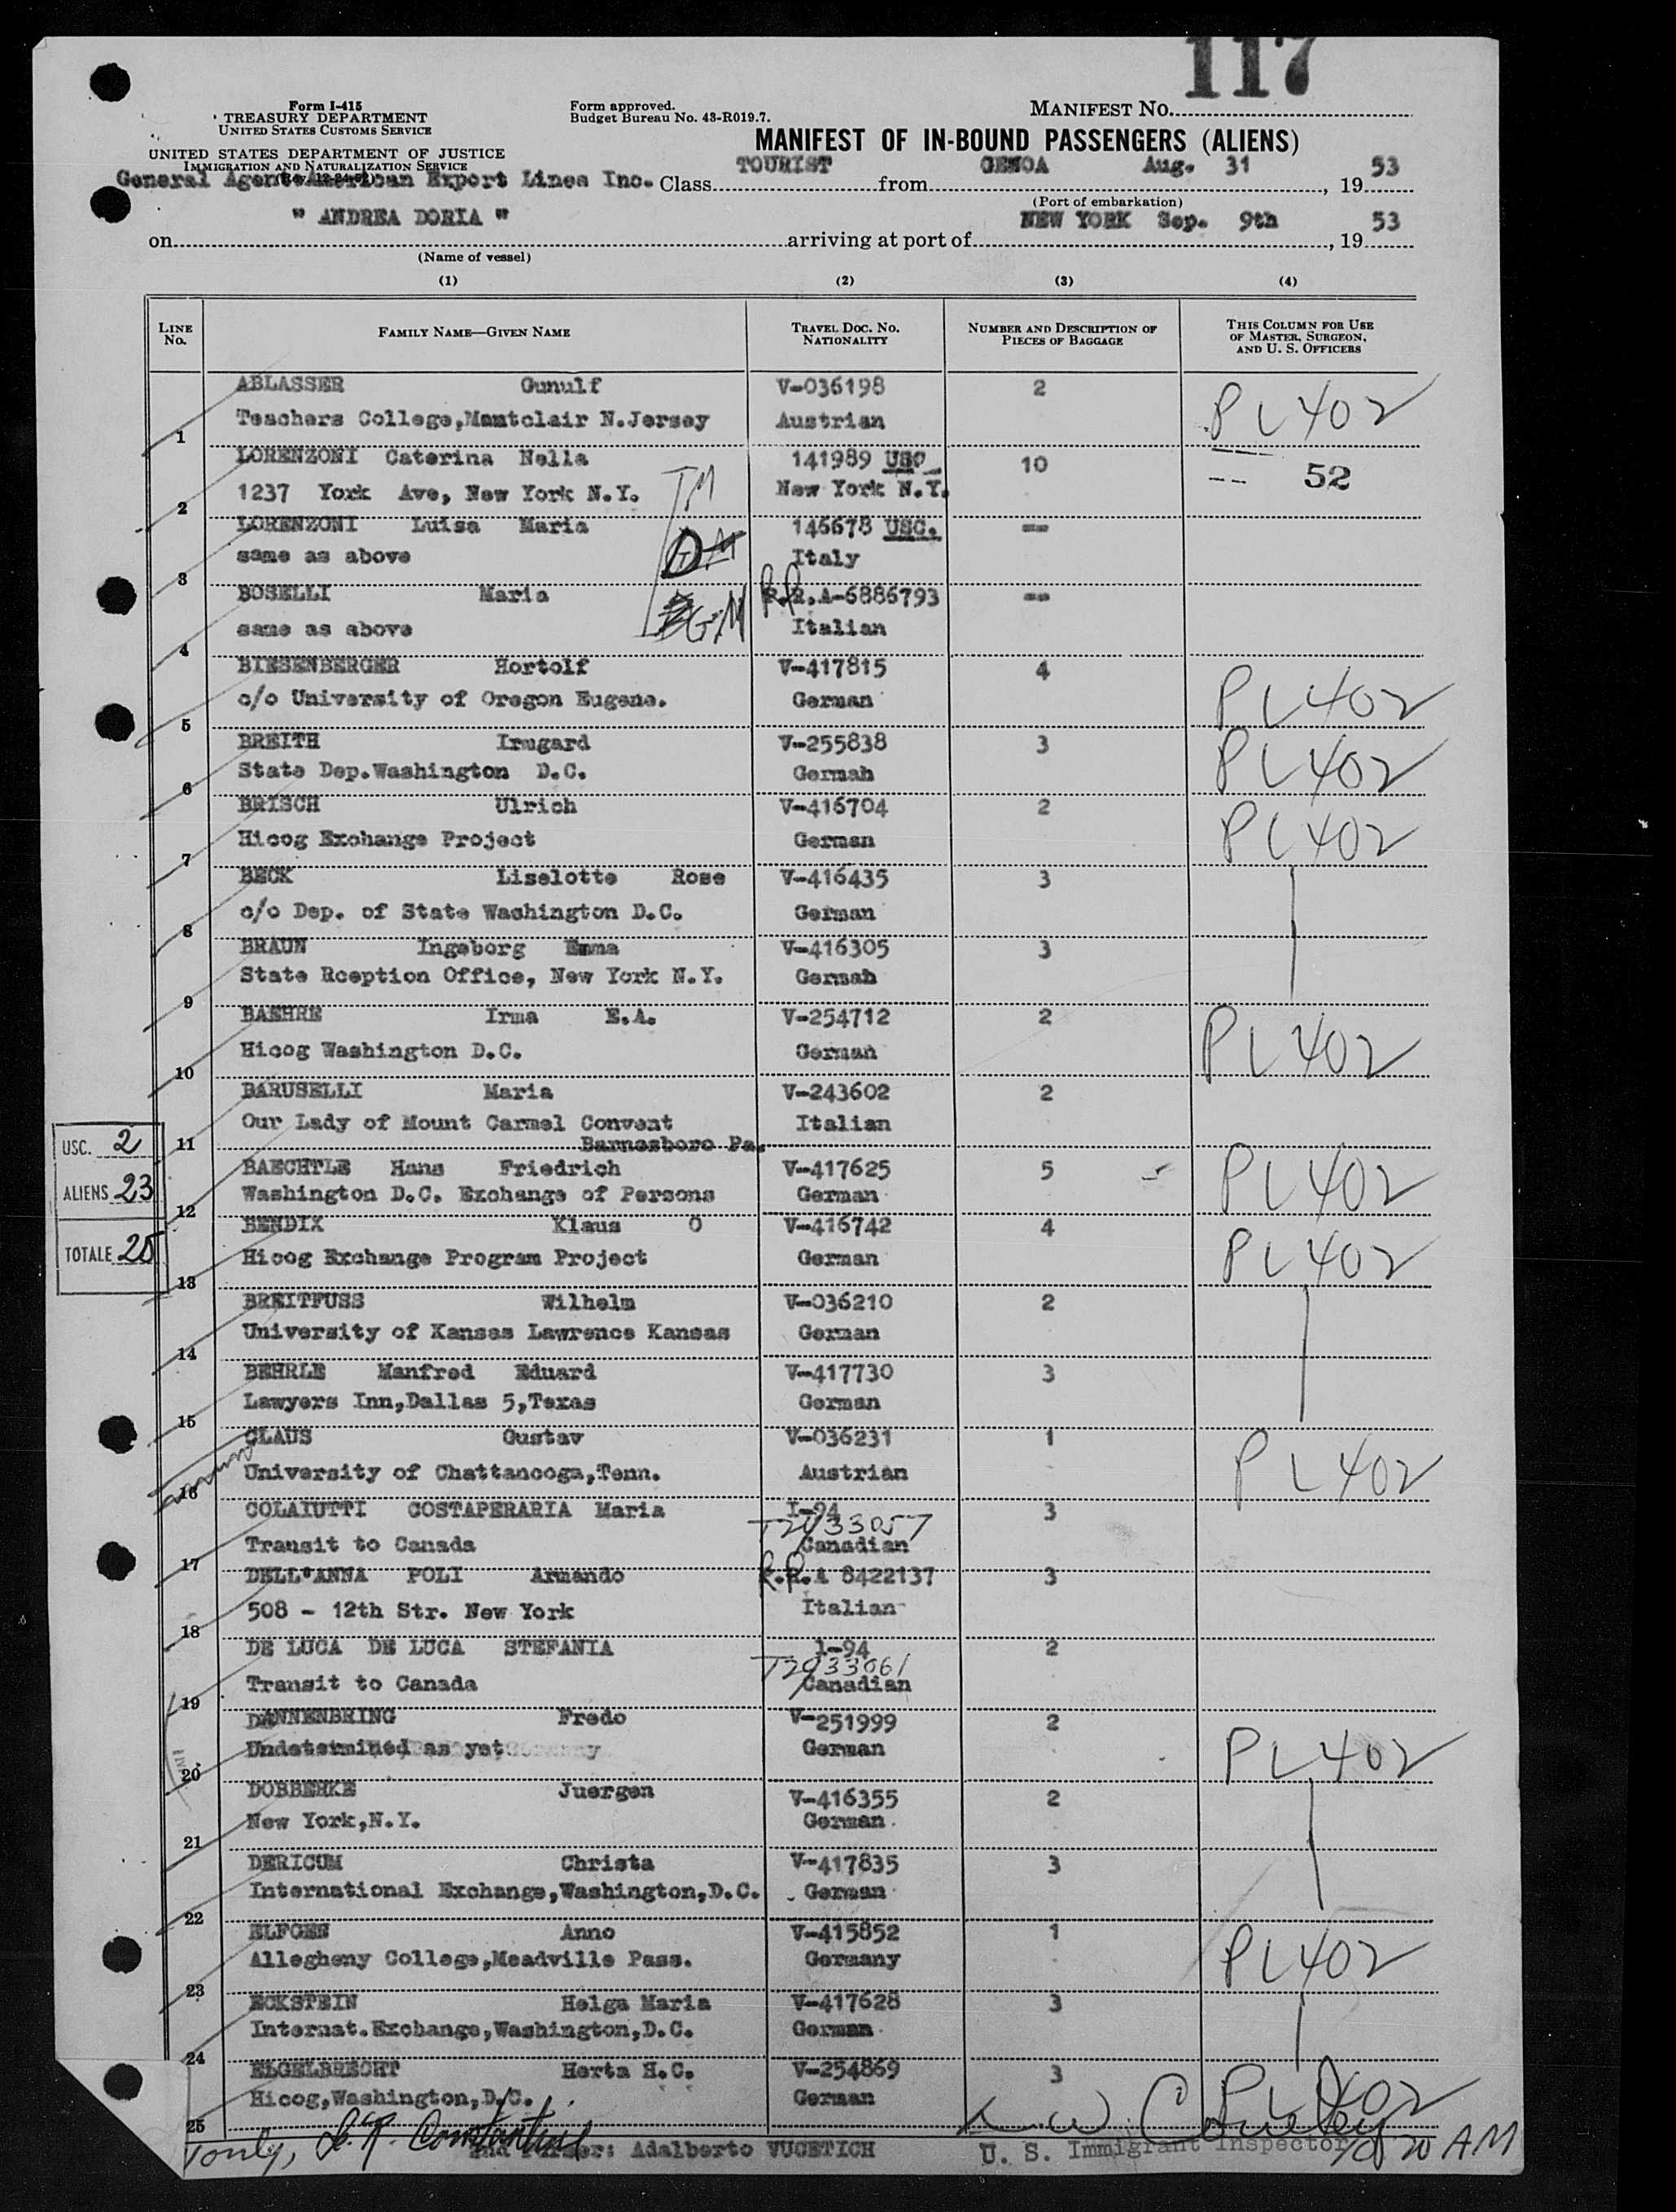 117
Form I-415
TREASURY DEPARTMENT
UNITED STATES CUSTOMS SERVICE
Form approved.
Budget Bureau No. 43-R019.7.
MANIFEST NO.
MANIFEST OF IN-BOUND PASSENGERS (ALIENS)
UNITED STATES DEPARTMENT OF JUSTICE
IMMIGRATION AND NATURALIZATION SERVICE
General Agents American Export Lines Inc. Class TOURIST from GENOA Aug. 31, 1953
(Port of embarkation)
on " ANDREA DORIA " arriving at port of NEW YORK Sep. 9th, 1953
(Name of vessel)
(1) (2) (3) (4)
LINE No. FAMILY NAME—GIVEN NAME TRAVEL DOC. NO. NATIONALITY NUMBER AND DESCRIPTION OF PIECES OF BAGGAGE THIS COLUMN FOR USE OF MASTER, SURGEON, AND U. S. OFFICERS
ABLASSER Gunulf V-036198 2 PL 402
1 Teachers College,Mantclair N.Jersey Austrian
LORENZONI Caterina Nella 141989 USC 10 -- 52
2 1237 York Ave, New York N.Y. TM New York N.Y.
LORENZONI Luisa Maria 146678 USC. --
3 same as above Italy
BOSELLI Maria R.R.A-6886793 --
4 same as above G-M Italian
BIESENBERGER Hortolf V-417815 4 PL 402
5 c/o University of Oregon Eugene. German
BREITH Irmgard V-255838 3 PL 402
6 State Dep.Washington D.C. Germah
BRISCH Ulrich V-416704 2 PL 402
7 Hicog Exchange Project German
BECK Liselotte Rose V-416435 3
8 c/o Dep. of State Washington D.C. German
BRAUN Ingeborg Emma V-416305 3
9 State Rception Office, New York N.Y. Germah
BAEHRE Irma E.A. V-254712 2 PL 402
10 Hicog Washington D.C. German
BARUSELLI Maria V-243602 2
11 Our Lady of Mount Carmel Convent Italian
Barnesboro Pa.
BAECHTLE Hans Friedrich V-417625 5 PL 402
12 Washington D.C. Exchange of Persons German
BENDIX Klaus O V-416742 4 PL 402
13 Hicog Exchange Program Project German
USC. 2
ALIENS 23
TOTALE 25
BREITFUSS Wilhelm V-036210 2
14 University of Kansas Lawrence Kansas German
BEHRLE Manfred Eduard V-417730 3
15 Lawyers Inn,Dallas 5,Texas German
CLAUS Gustav V-036231 1 PL 402
16 University of Chattanooga,Tenn. Austrian
COLAIUTTI COSTAPERARIA Maria I-94 3
T2933057
17 Transit to Canada Canadian
DELL'ANNA POLI Armando R.R.A 8422137 3
18 508 - 12th Str. New York Italian
DE LUCA DE LUCA STEFANIA 1-94 2
T2933061
19 Transit to Canada Canadian
DANNENBRING Fredo V-251999 2 PL 402
20 Undetermined as yet German
DOBBERKE Juergen V-416355 2
21 New York,N.Y. German
DERICUM Christa V-417835 3
22 International Exchange,Washington,D.C. German
ELFGEN Anno V-415852 1 PL 402
23 Allegheny College,Meadville Pass. Germany
ECKSTEIN Helga Maria V-417628 3
24 Internat.Exchange,Washington,D.C. German
ELGELBRECHT Herta H.C. V-254869 3 PL 402
25 Hicog,Washington,D.C. German
2nd Purser: Adalberto VUCETICH U. S. Immigrant Inspector 10 20 AM